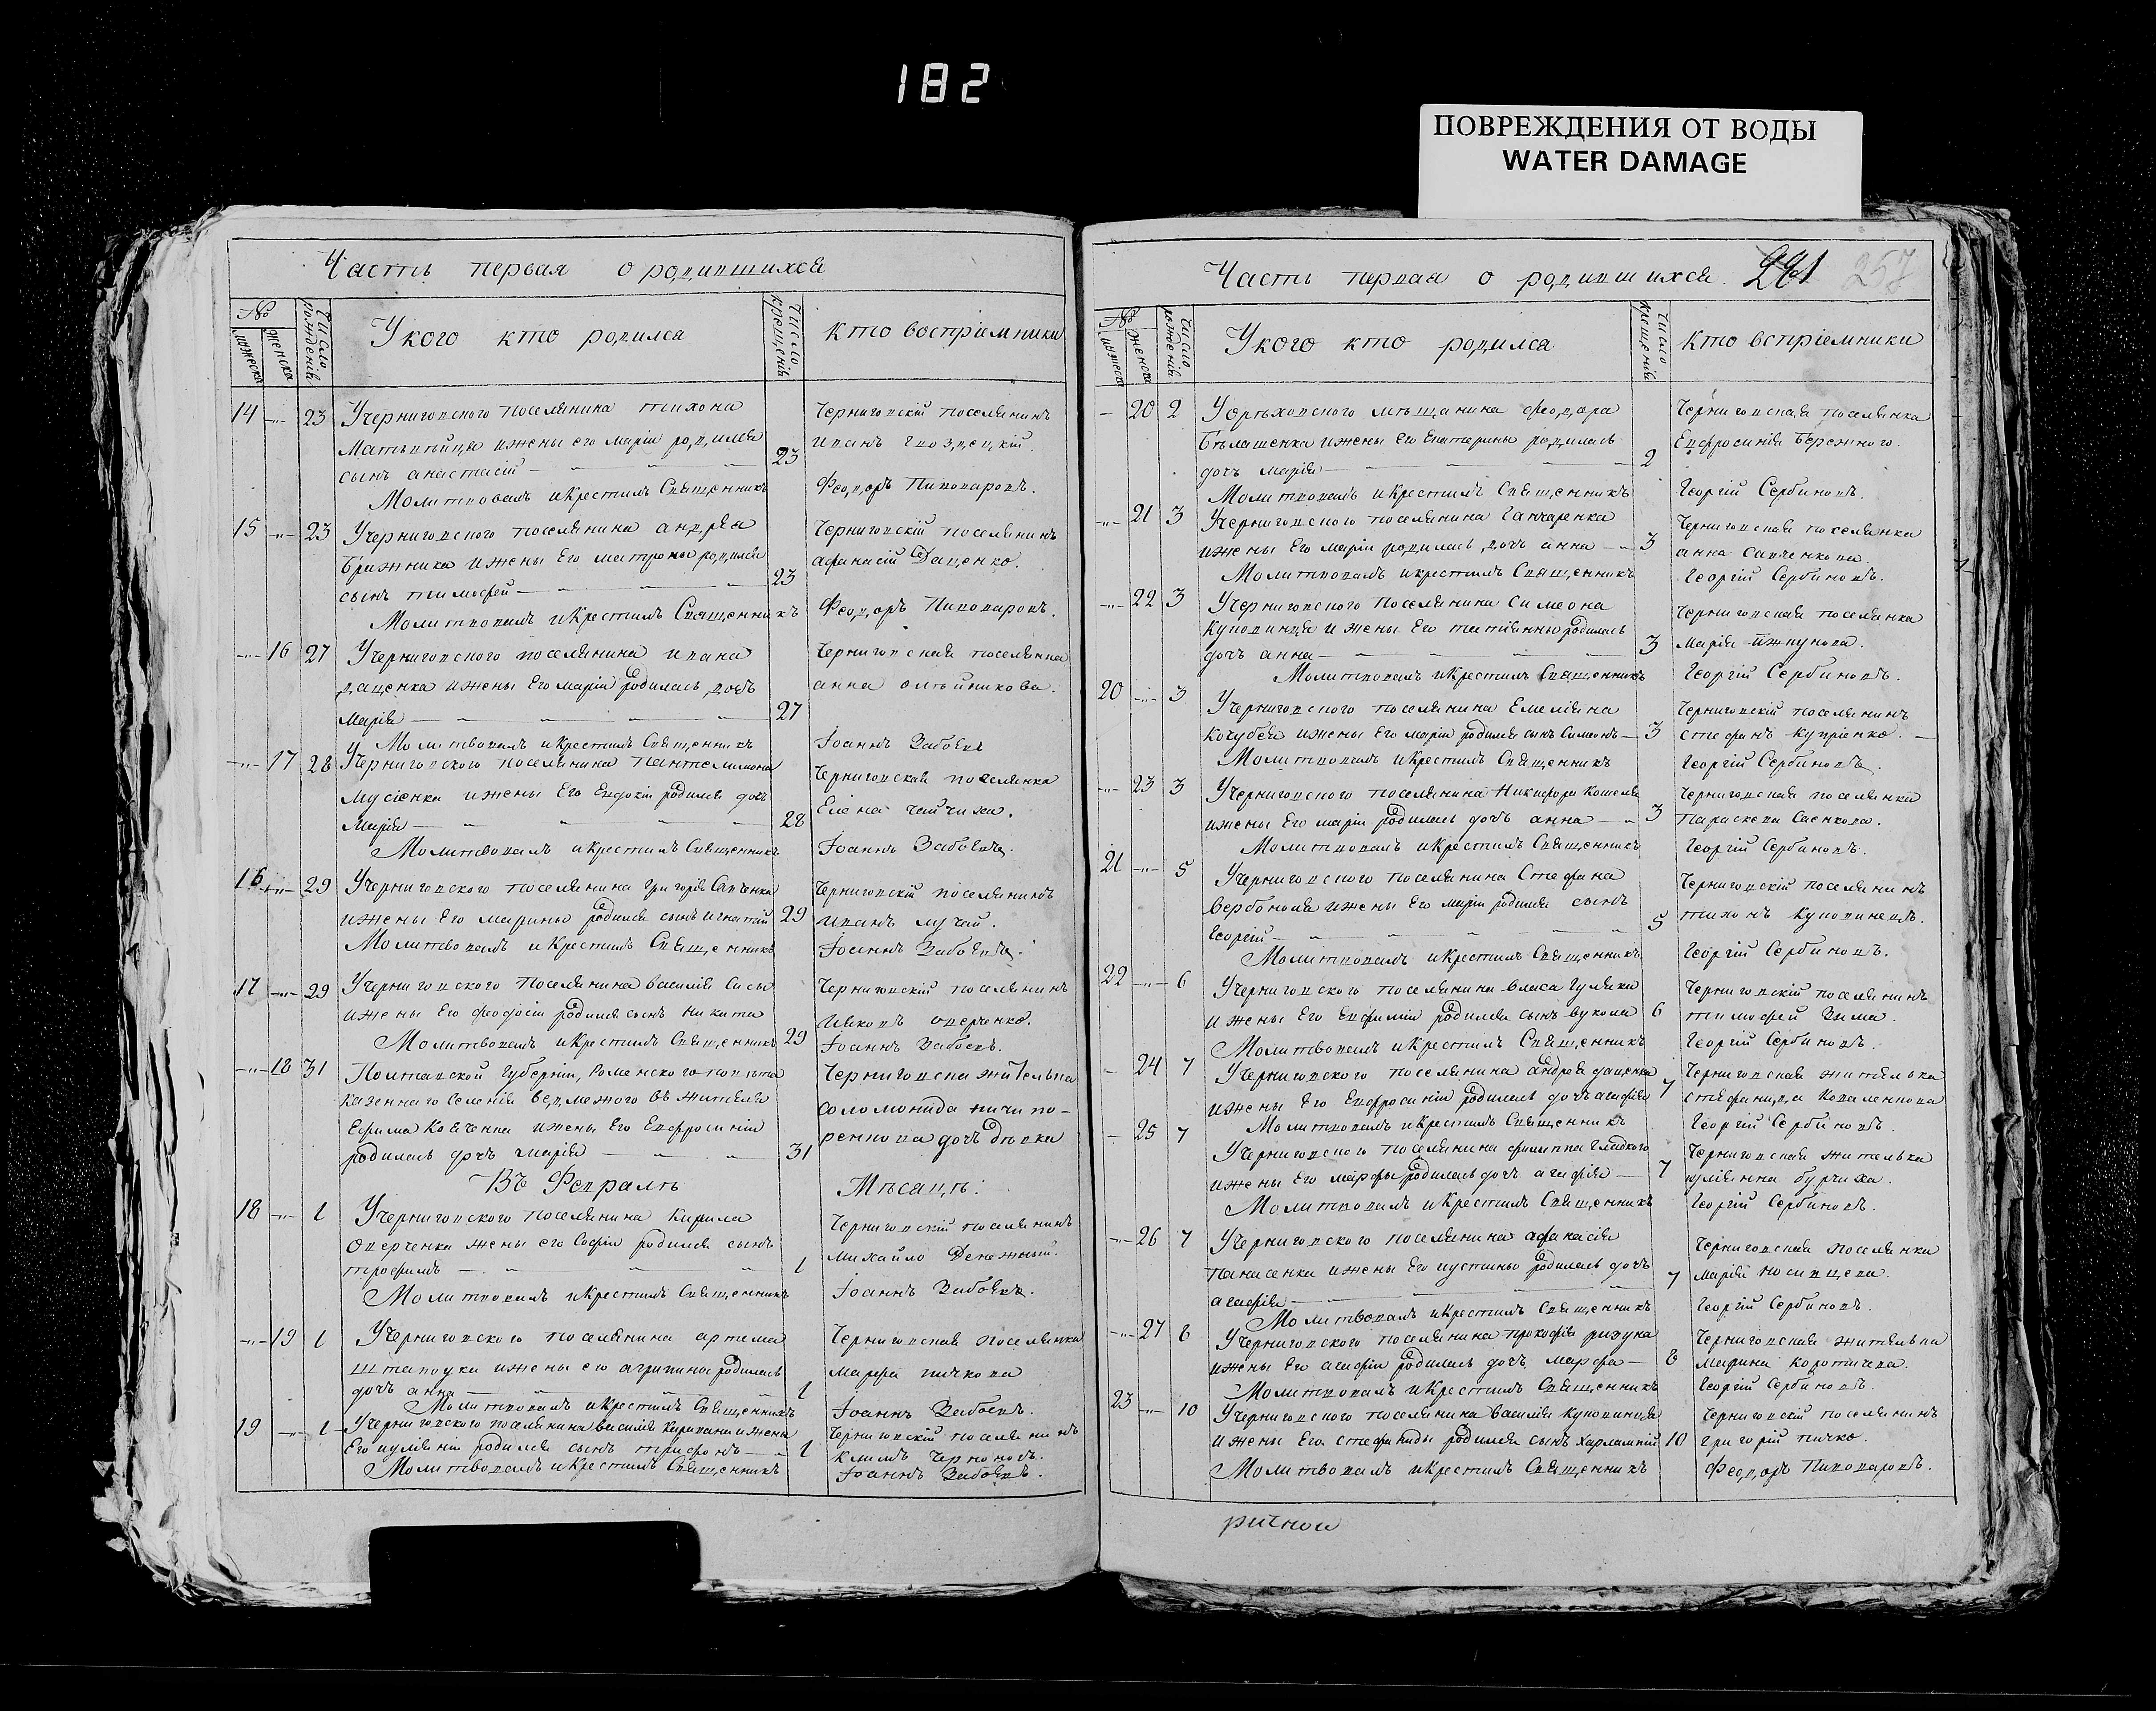 182
ПОВРЕЖДЕНИЯ ОТ ВОДЫ
WATER DAMAGE
Часть первая о родившихся
№
мужеска
женска
Число рожденія
У кого кто родился
Число крещенія
Кто воспріемники
14 23 У черниговского поселянина тихона
Матвѣйця и жены его маріи родился
сынъ анастасій 23
Молитвовалъ и Крестилъ Священникъ
Черниговскій поселянинъ
иванъ гвоздецкій.
Феодоръ Пивоваровъ.
15 23 У черниговского поселянина андрея
Бражника и жены Его матроны родился
сынъ тимофей 23
Молитвовалъ и Крестилъ Священникъ
Черниговскій поселянинъ
афанасій Даценко.
Феодоръ Пивоваровъ.
16 27 У черниговского поселянина ивана
даценка и жены Его маріи родилась дочь
Марія 27
Молитвовалъ и Крестилъ Священникъ
Черниговская поселянка
анна олѣйникова.
Іоаннъ Забоевъ
17 28 У черниговского поселянина Пантелимона
Мусіенка и жены Его Евдокіи родилася дочь
Марія 28
Молитвовалъ и Крестилъ Священникъ
Черниговская поселянка
Елена чайчиха.
Іоаннъ Забоевъ.
16 29 У черниговского поселянина григорія Савенка
и жены Его марины родился сынъ игнатій 29
Молитвовалъ и Крестилъ Священникъ
Черниговскій поселянинъ
иванъ лучай.
Іоаннъ Забоевъ.
17 29 У черниговского поселянина василія Сисы
и жены Его феодосіи родился сынъ никита 29
Молитвовалъ и Крестилъ Священникъ
Черниговскій поселянинъ
иаковъ оверченко.
Іоаннъ Забоевъ.
18 31 Полтавской Губерніи, Роменского повѣта
казеннаго селенія ведмежого въ жителя
Ефима Ковченка и жены Его Евфросиніи
родилась дочь марія 31
Черниговска жителька
соломонида ничипо-
ренкова дочь дѣвка
Въ Февралѣ Мѣсацѣ.
18 1 У черниговского поселянина Кирила
Оверченка жены его Софіи родился сынъ
трофимъ 1
Молитвовалъ и Крестилъ Священникъ
Черниговскій поселянинъ
михайло Денежный.
Іоаннъ Забоевъ.
19 1 У черниговского поселянина артема
шаповука и жены его агрипины родилась
дочь анна 1
Молитвовалъ и Крестилъ Священникъ
Черниговская поселянка
марфа пичкова
Іоаннъ Забоевъ.
19 1 У черниговского поселянина василія и жены
Его иуліяніи родился сынъ трифонъ 1
Молитвовалъ и Крестилъ Священникъ
Черниговскій поселянинъ
климъ Черноновъ.
Іоаннъ Забоевъ.
Часть первая о родившихся. 241 257
№
мужеска
женска
Число рожденія
У кого кто родился
Число Крещенія
Кто вспріемники
20 2 У орѣховского мѣщанина феодора
Бѣлашенка и жены Его Екатерины родилась
дочь марія 2
Молитвовалъ и Крестилъ Священникъ
Черниговская поселянка
Евфросинія Бережного.
Георгій Сербиновъ.
21 3 У черниговского поселянина Ганчаренка
и жены Его маріи родилась дочь анна 3
Молитвовалъ и крестилъ Священникъ
Черниговская поселянка
анна савченкова.
Георгій Сербиновъ.
22 3 У черниговского поселянина симеона
Куповинця и жены Его татіянны родилась
дочь анна 3
Молитвовалъ и Крестилъ Священникъ
Черниговская поселянка
Марія
Георгій Сербиновъ.
20 3 У черниговского поселянина Емеліяна
Кочубея и жены Его маріи родился сынъ Симеонъ 3
Молитвовалъ и Крестилъ Священникъ
Черниговскій поселянинъ
стефанъ купріенко.
Георгій Сербиновъ.
23 3 У черниговского поселянина Никифора Кошеля
и жены Его маріи родилась дочь анна 3
Молитвовалъ и Крестилъ Священникъ
Черниговская поселянка
Параскева Саенкова.
Георгій Сербиновъ.
21 5 У черниговского поселянина Стефана
Вербоноля и жены Его маріи родился сынъ
Георгій 5
Молитвовалъ и Крестилъ Священникъ
Черниговскій поселянинъ
тихонъ Куповинецъ.
Георгій Сербиновъ.
22 6 У черниговского поселянина власа гуляки
и жены Его Евфиміи родился сынъ вукола 6
Молитвовалъ и Крестилъ Священникъ
Черниговскій поселянинъ
тимофей Зима.
Георгій Сербиновъ.
24 7 У черниговского поселянина андрея даценка
и жены Его Евфросиніи родилась дочь агафія 7
Молитвовалъ и Крестилъ Священникъ
Черниговская жителька
стефанида Коваленкова
Георгій Сербиновъ.
25 7 У черниговского поселянина филиппа Гладкого
и жены Его марфы родилась дочь агафія 7
Молитвовалъ и Крестилъ Священникъ
Черниговская жителька
иулянна бурчиха.
Георгій Сербиновъ.
26 7 У черниговского поселянина афанасія
Панасенка и жены Его иустины родилась дочь
агафія 7
Молитвовалъ и Крестилъ Священникъ
Черниговская поселянка
марія носивцева.
Георгій Сербиновъ.
27 8 У черниговского поселянина прокофія ризуна
и жены Его агафіи родилась дочь марфа 8
Молитвовалъ и Крестилъ Священникъ
Черниговская жителька
марина коротичева.
Георгій Сербиновъ.
23 10 У черниговского поселянина василія Куповинця
и жены Его стефаниды родился сынъ харлампій 10
Молитвовалъ и Крестилъ Священникъ
Черниговскій поселянинъ
григорій пичко.
Феодоръ Пивоваровъ.